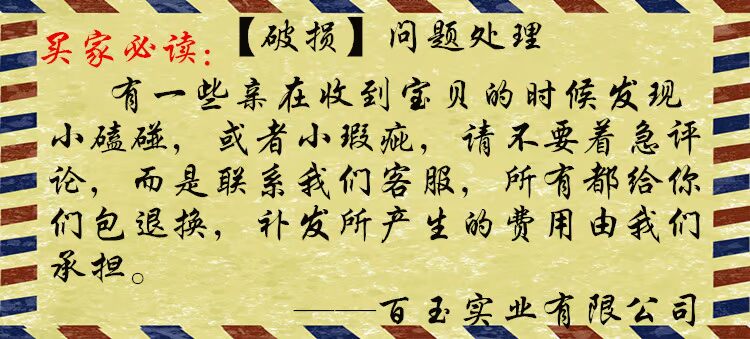 买家必读：【破损】问题处理
有一些亲在收到宝贝的时候发现
小磕碰，或者小瑕疵，请不要着急评
论，而是联系我们客服，所有都给你
们包退换，补发所产生的费用由我们
承担。
———百玉实业有限公司